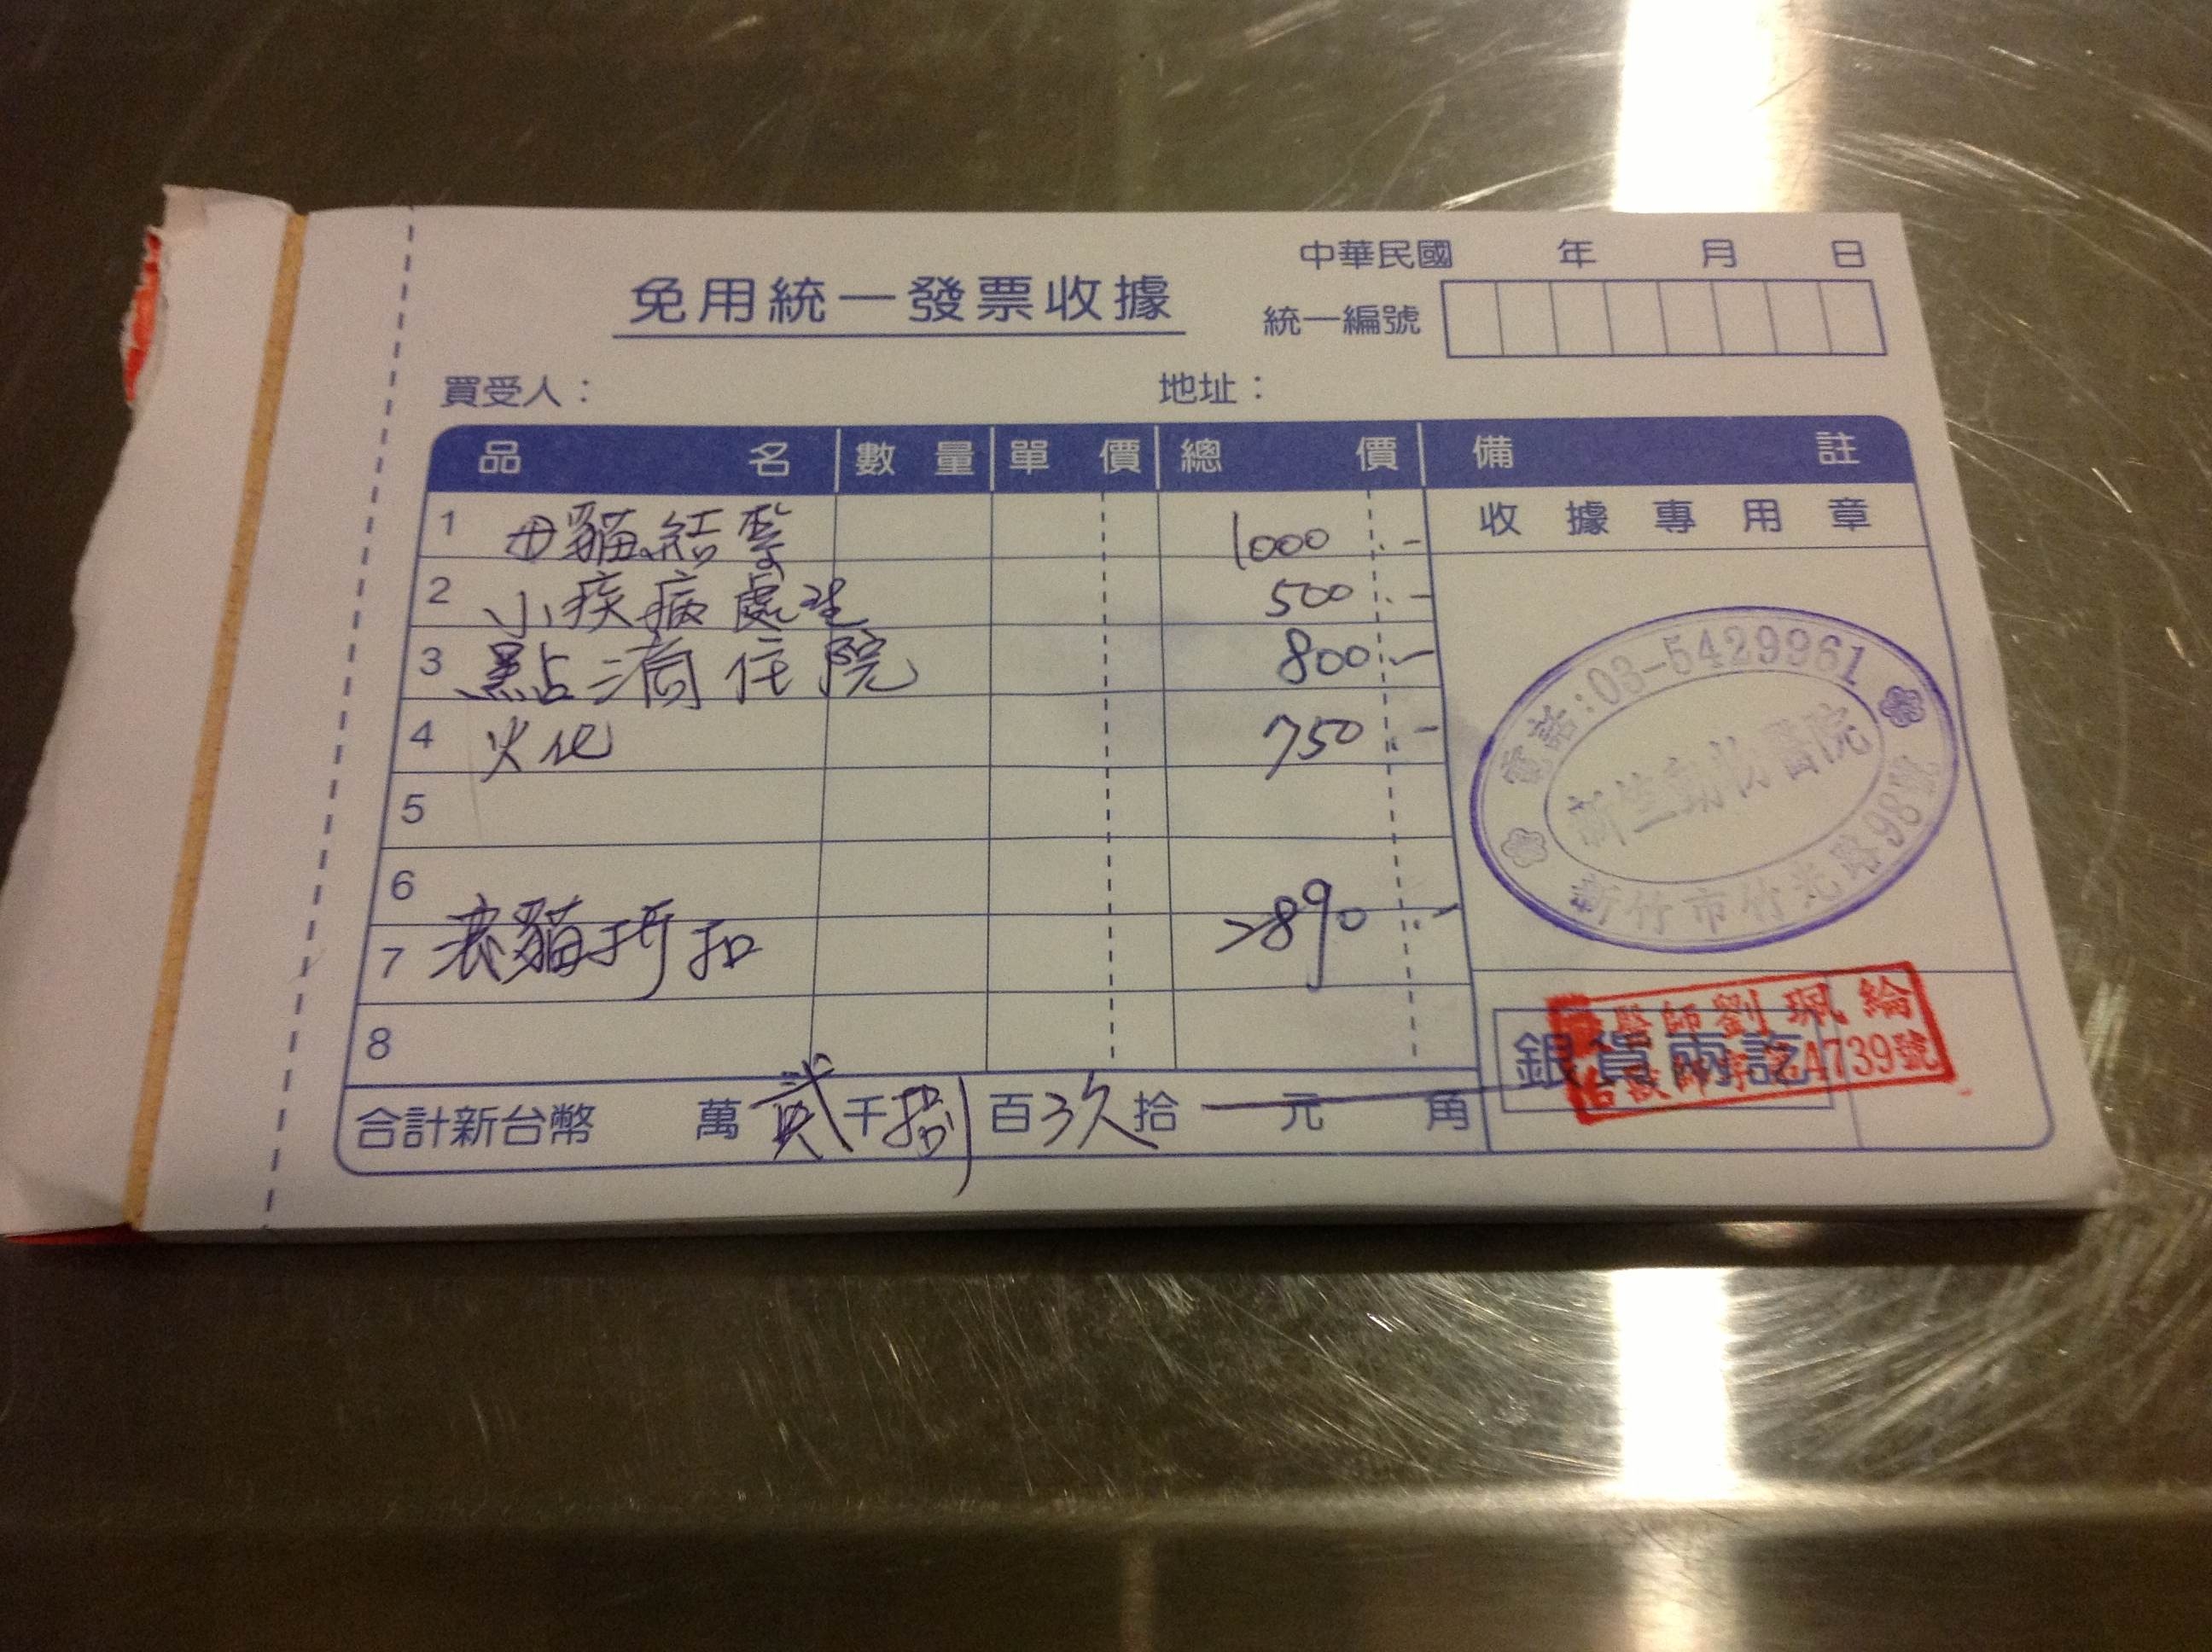 中華民國 年 月 日
免用統一發票收據
統一編號
買受人： 地址：
品名 數量 單價 總價 備註
收據專用章
1 母貓結紮 1000.-
2 小疾病處理 500.-
3 點滴住院 800.-
4 火化 750.-
5
6
7 表貓折扣 2890.-
8
電話:03-5429961
新生動物醫院
新竹市竹光路98號
醫師劉珮綸
4739號
銀貨兩訖
合計新台幣 萬貳千捌百 拾 元 角